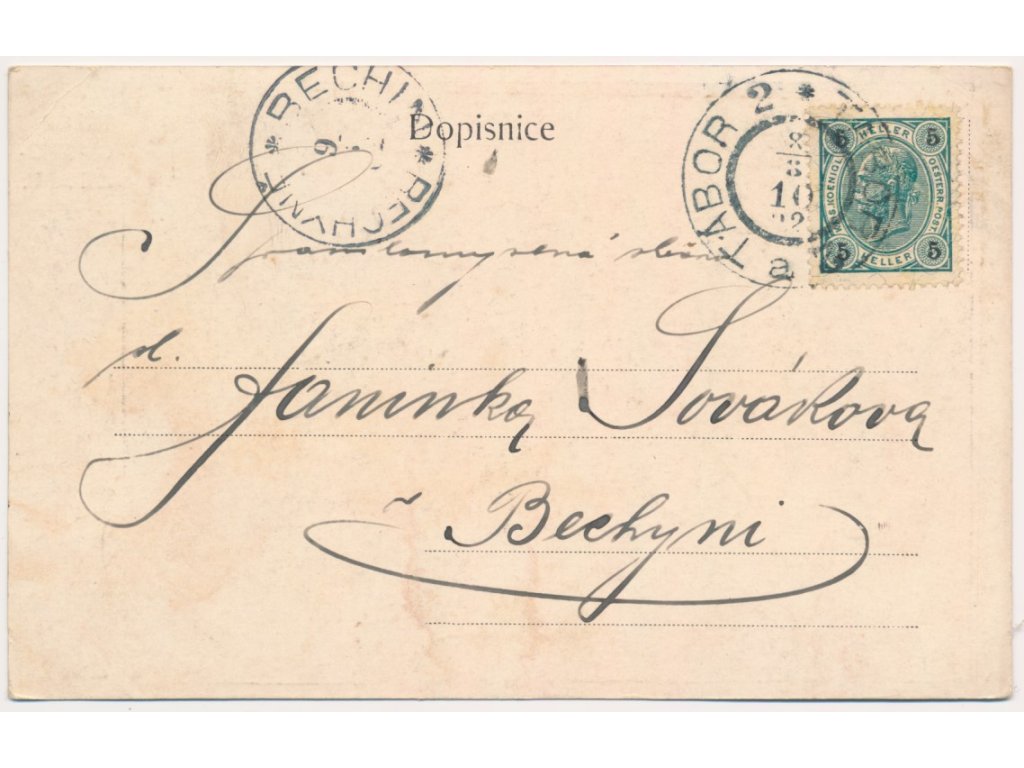 BECHIN * BECHYNĚ *
9
Dopisnice
TÁBOR 2 * TÁBOR
8/8
10
02
a
5 HELLER 5
KAIS. KOENIGL. OESTERR. POST
5 HELLER 5
Šlechetná slečna
sl.
Janinka Sováková
v Bechyni